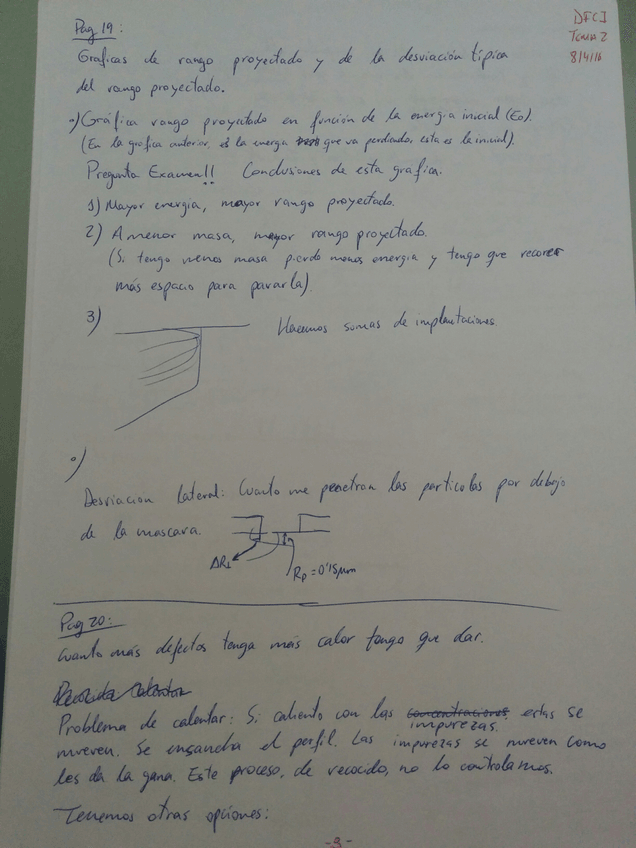 DFCI
Tema 2
8/4/16
Pag 19:
Graficas de rango proyectado y de la desviación típica
del rango proyectado.
•) Gráfica rango proyectado en función de la energia inicial (E0).
(En la grafica anterior, es la energia que va perdiendo, esta es la inicial).
Pregunta Examen!! Conclusiones de esta grafica.
1) Mayor energia, mayor rango proyectado.
2) A menor masa, mayor rango proyectado.
(Si tengo menos masa pierdo menos energia y tengo que recorrer
más espacio para pararla).
3) Hacemos sumas de implantaciones.
•)
Desviacion Lateral: Cuanto me penetran las particulas por debajo
de la mascara.
ΔR⊥
Rp = 0'15μm
Pag 20:
Cuanto más defectos tenga más calor tengo que dar.
Problema de calentar: Si caliento con las concentraciones estas se
impurezas.
mueven. Se ensancha el perfil. Las impurezas se mueven como
les da la gana. Este proceso, de recocido, no lo controlamos.
Tenemos otras opciones:
-9-